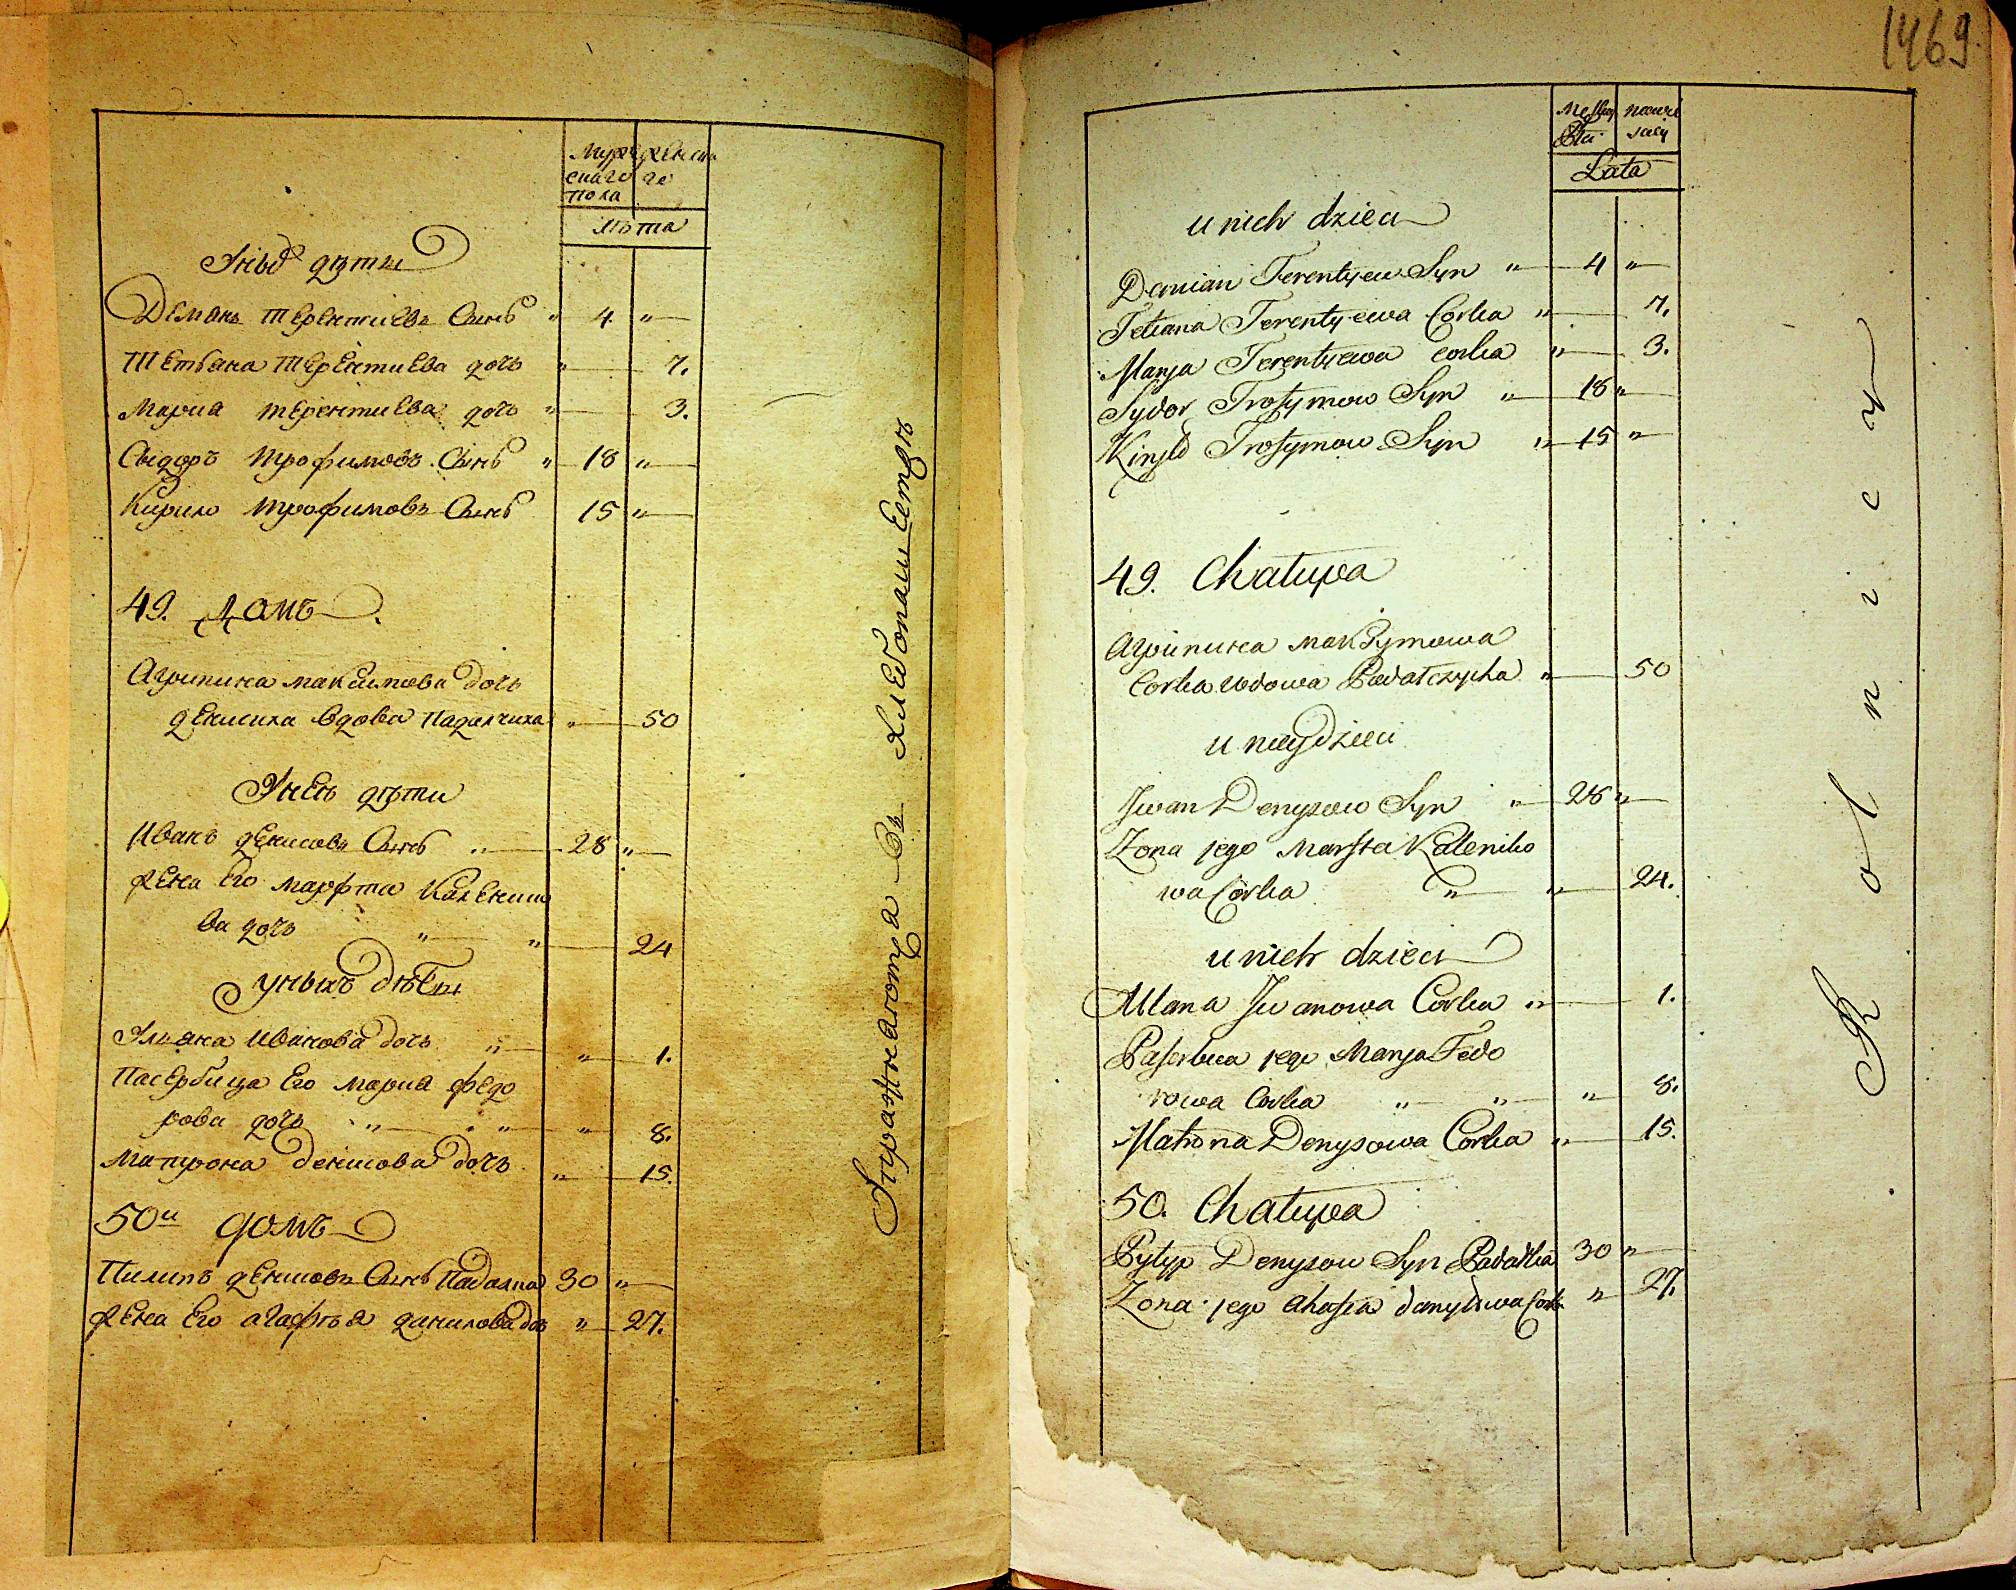 Мужескаго пола
женска го
Лѣта
Уныхъ дѣти
Деманъ Терентиевъ Сынъ " 4 "
Тетьана Терентиева дочь " 7.
Мариа терентиева дочь " 3.
Сыдоръ трофимовъ Сынъ " 18 "
Кирило трофимовъ Сынъ 15 "
49. домъ.
Агрипина максимова дочь
денисиха вдова Падалчиха " 50
Унеи дѣти
Иванъ денисовъ Сынъ " 28 "
жена Его марфта Каленико
ва дочь " " 24
уныхъ дѣти
Ульяна иванова дочь " " 1.
Пасербица Его мариа федо
рова дочь " " " 8.
Матрона денисова дочь " 15.
50й домъ
Пилипъ денисовъ Сынъ Падалка 30 "
жена Его агафтьа данилова дочь " 27.
Упражнаютца Въ хлебопашестве
1469.
Męskiey Płci
Lata
u nich dzieci
Demian Terentyew Syn " 4 "
Tetiana Terentyewa Corka " 7.
Marya Terentyewa corka " 3.
Sydor Trofymow Syn " 18 "
Kiryło Trofymow Syn " 15 "
49. Chałupa
Agripina makSymowa
Corka wdowa Padałczycha " 50
u niey dzieci
Jwan Denysow Syn " 28 "
Zona jego Marfta Kaleniko
wa Corka " " 24.
u nich dzieci
Ulana Jwanowa Corka " 1.
Paserbica jego Marya Fedo
rowa Corka " " " 8.
Matrona Denysowa Corka " 15.
50. Chałupa
Pyłyp Denysow Syn Padałka 30 "
Zona jego ahafia danyłowa Cork " 27.
Rolnicy